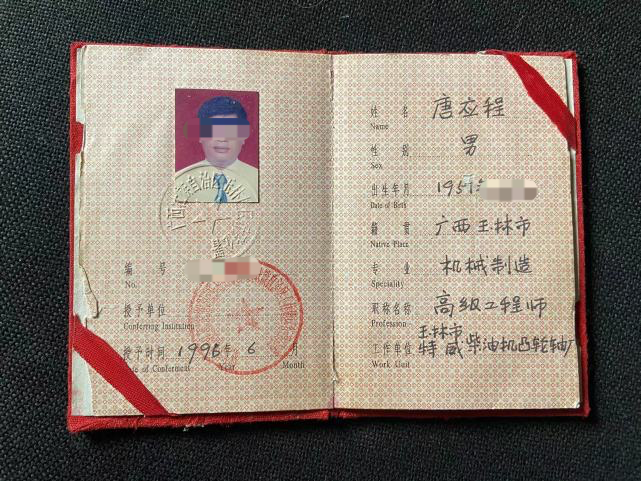 编号
No.
授予单位
Conferring Institution
授予时间 1996年 6月
Date of Conferment Year Month
姓名 唐应程
Name
性别 男
Sex
出生年月 195
Date of Birth
籍贯 广西玉林市
Native Place
专业 机械制造
Speciality
职称名称 高级工程师
Profession
玉林市
工作单位 特威柴油机凸轮轴厂
Work Unit